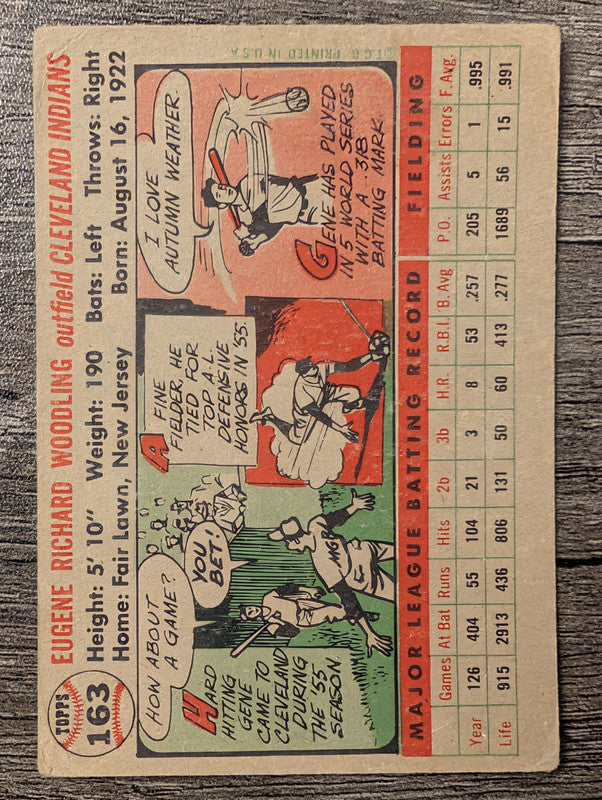 TOPPS
163
EUGENE RICHARD WOODLING outfield CLEVELAND INDIANS
Height: 5' 10" Weight: 190 Bats: Left Throws: Right
Home: Fair Lawn, New Jersey Born: August 16, 1922
HOW ABOUT
A GAME?
YOU
BET!
MGR.
HARD
HITTING
GENE
CAME TO
CLEVELAND
DURING
THE '55
SEASON.
A
FINE
FIELDER, HE
TIED FOR
TOP A.L.
DEFENSIVE
HONORS IN '55.
I LOVE
AUTUMN WEATHER.
GENE HAS PLAYED
IN 5 WORLD SERIES
WITH A .318
BATTING MARK.
MAJOR LEAGUE BATTING RECORD FIELDING
Games At Bat Runs Hits 2b 3b H.R. R.B.I. B. Avg. P.O. Assists Errors F. Avg.
Year 126 404 55 104 21 3 8 53 .257 205 5 1 .995
Life 915 2913 436 806 131 50 60 413 .277 1689 56 15 .991
©T.C.G. PRINTED IN U.S.A.